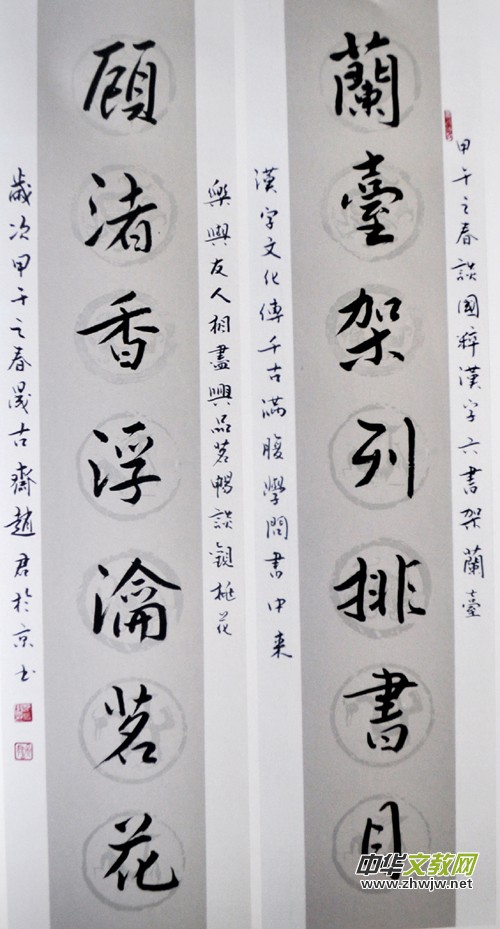 甲午之春談國粹漢字六書架蘭臺
蘭臺架列排書目
漢字文化傳千古滿腹學問書中来
樂與友人相盡興品茗暢談觀桃花
顧渚香浮瀹茗花
歲次甲午之春晟古齋趙君於京书
中华文教网
www.zhwjw.net